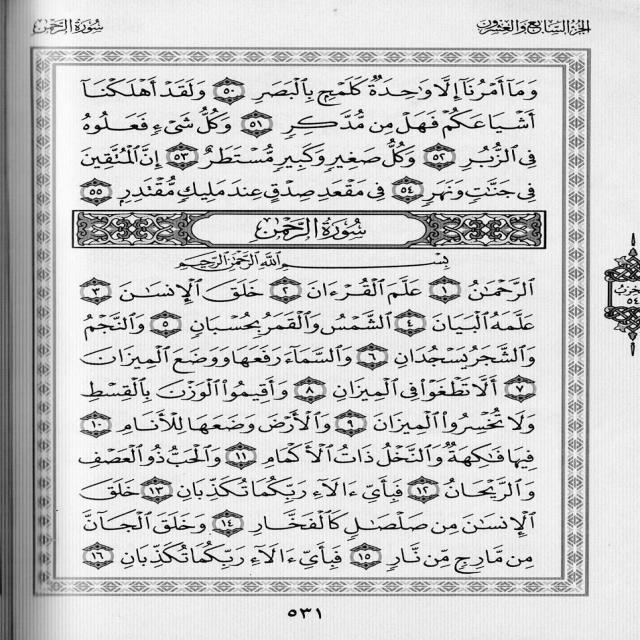 الجزء السابع والعشرون
سورة الرحمن
وَمَآ أَمْرُنَآ إِلَّا وَاحِدَةٌ كَلَمْحٍۭ بِٱلْبَصَرِ ٥٠ وَلَقَدْ أَهْلَكْنَآ
أَشْيَاعَكُمْ فَهَلْ مِن مُّدَّكِرٍ ٥١ وَكُلُّ شَىْءٍ فَعَلُوهُ
فِى ٱلزُّبُرِ ٥٢ وَكُلُّ صَغِيرٍ وَكَبِيرٍ مُّسْتَطَرٌ ٥٣ إِنَّ ٱلْمُتَّقِينَ
فِى جَنَّٰتٍ وَنَهَرٍ ٥٤ فِى مَقْعَدِ صِدْقٍ عِندَ مَلِيكٍ مُّقْتَدِرٍۭ ٥٥
سُورَةُ الرَّحْمٰن
بِسْمِ ٱللَّهِ ٱلرَّحْمَٰنِ ٱلرَّحِيمِ
ٱلرَّحْمَٰنُ ١ عَلَّمَ ٱلْقُرْءَانَ ٢ خَلَقَ ٱلْإِنسَٰنَ ٣
عَلَّمَهُ ٱلْبَيَانَ ٤ ٱلشَّمْسُ وَٱلْقَمَرُ بِحُسْبَانٍ ٥ وَٱلنَّجْمُ
وَٱلشَّجَرُ يَسْجُدَانِ ٦ وَٱلسَّمَآءَ رَفَعَهَا وَوَضَعَ ٱلْمِيزَانَ
٧ أَلَّا تَطْغَوْا۟ فِى ٱلْمِيزَانِ ٨ وَأَقِيمُوا۟ ٱلْوَزْنَ بِٱلْقِسْطِ
وَلَا تُخْسِرُوا۟ ٱلْمِيزَانَ ٩ وَٱلْأَرْضَ وَضَعَهَا لِلْأَنَامِ ١٠
فِيهَا فَٰكِهَةٌ وَٱلنَّخْلُ ذَاتُ ٱلْأَكْمَامِ ١١ وَٱلْحَبُّ ذُو ٱلْعَصْفِ
وَٱلرَّيْحَانُ ١٢ فَبِأَىِّ ءَالَآءِ رَبِّكُمَا تُكَذِّبَانِ ١٣ خَلَقَ
ٱلْإِنسَٰنَ مِن صَلْصَٰلٍ كَٱلْفَخَّارِ ١٤ وَخَلَقَ ٱلْجَآنَّ
مِن مَّارِجٍ مِّن نَّارٍ ١٥ فَبِأَىِّ ءَالَآءِ رَبِّكُمَا تُكَذِّبَانِ ١٦
حزب
٥٤
٥٣١